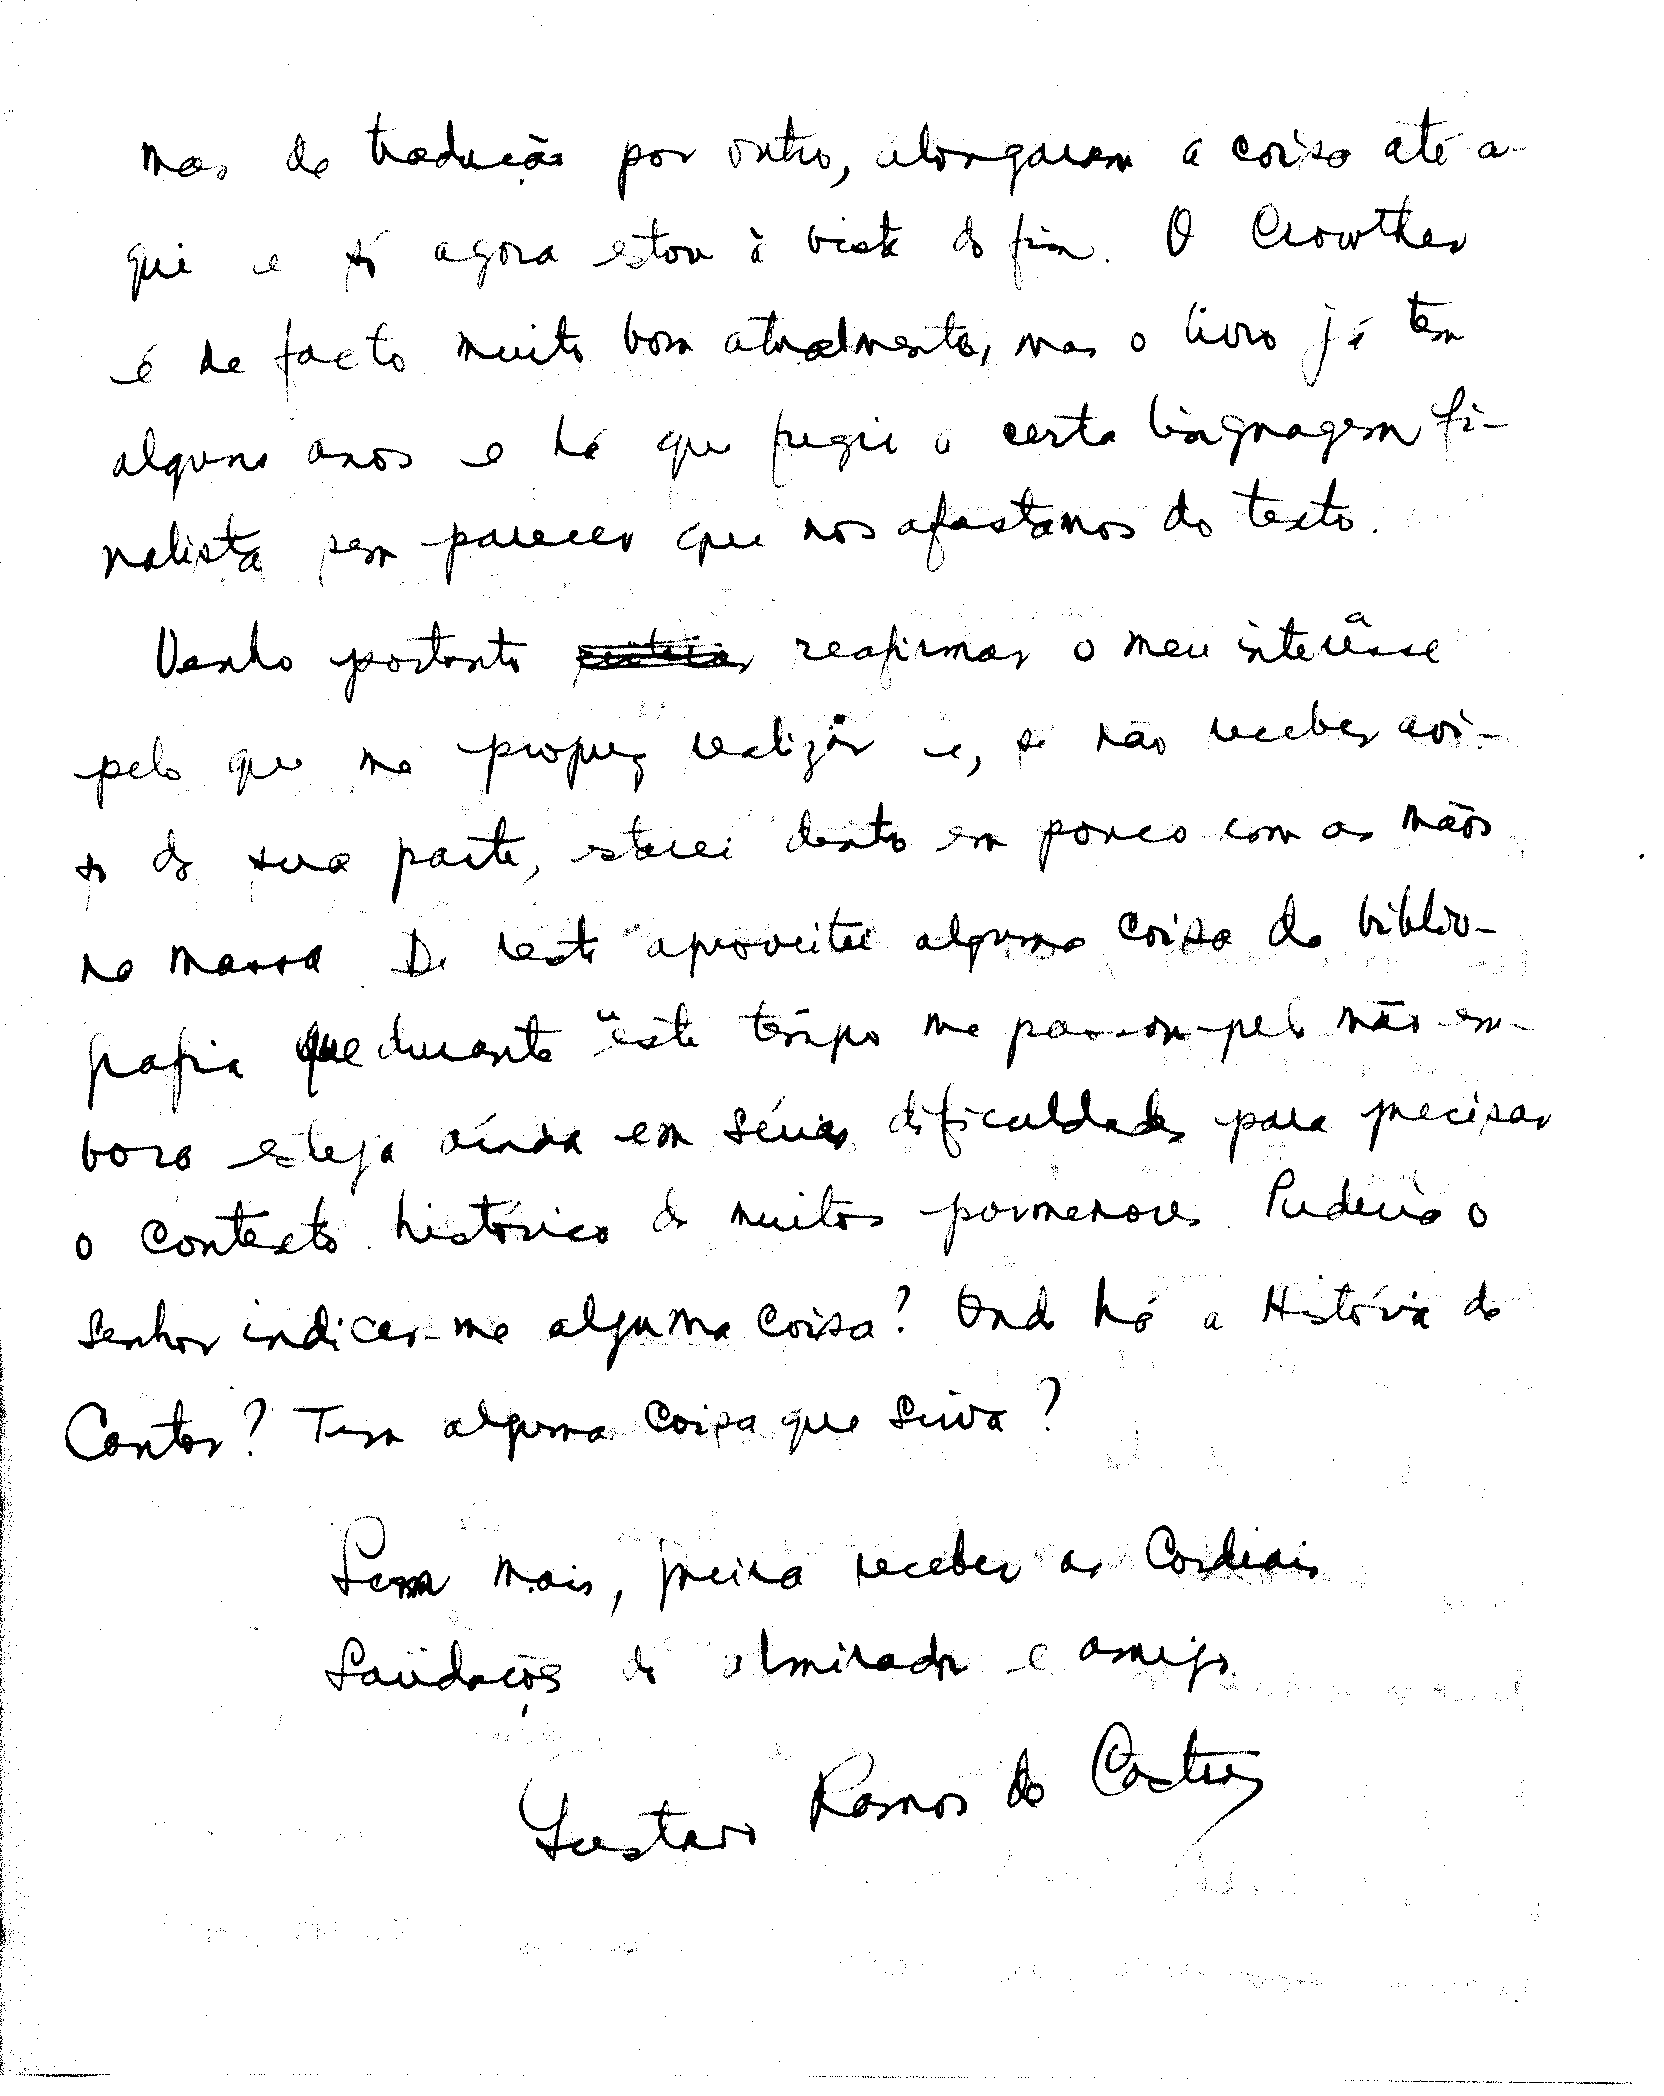 mas de tradução por outro, alongaram a coisa até a-
qui e só agora estou à vista do fim. O Crowther
é de facto muito bom atualmente, mas o livro já tem
alguns anos e há que fugir a certa linguagem fi-
nalista sem parecer que nos afastamos do texto.
Venho portanto reafirmar o meu interêsse
pelo que me propuz realizar e, se não receber avi-
so de sua parte, estarei dentro em pouco com as mãos
na massa. De resto aproveitei alguma coisa da biblio-
grafia que durante êste tempo me passou pela mão em-
bora esteja ainda em sérias dificuldades para precisar
o contexto histórico de muitos pormenores. Poderia o
Senhor indicar-me alguma coisa? Onde há a História do
Cantor? Tem alguma coisa que sirva?
Sem mais, queira receber as cordiais
Saudações do admirador e amigo
Gustavo Ramos de Castro